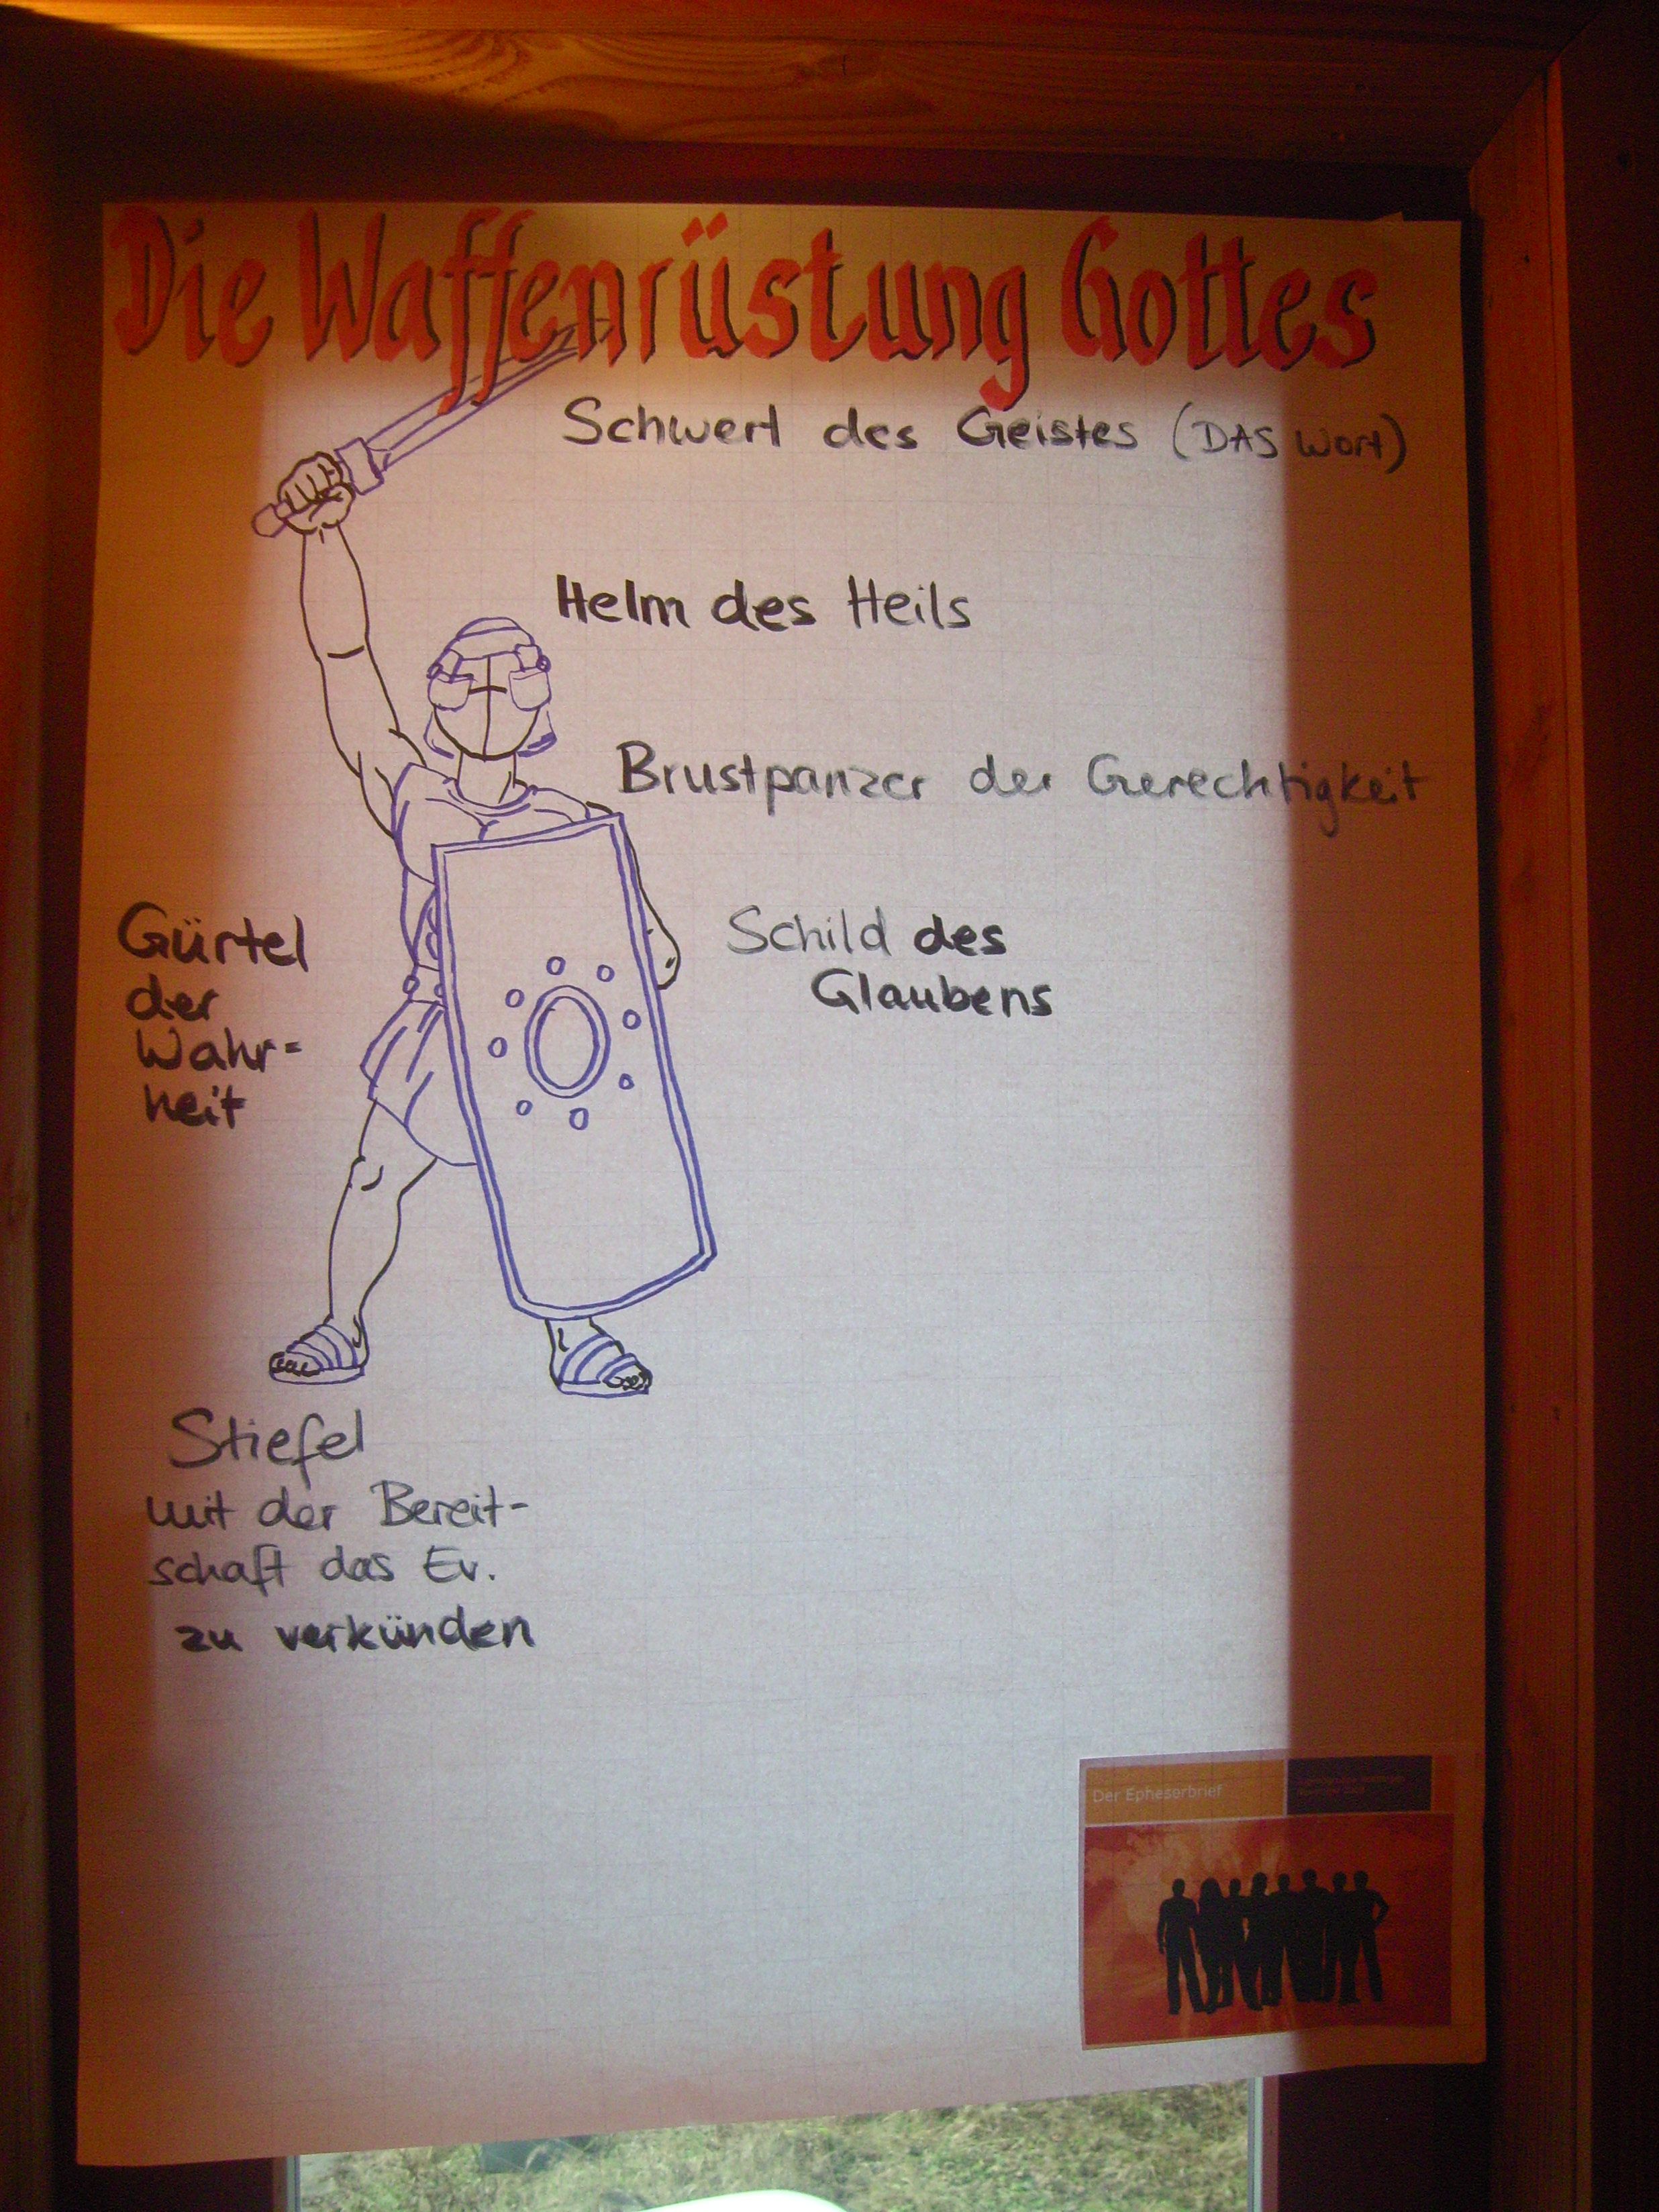 Die Waffenrüstung Gottes
Schwert des Geistes (DAS Wort)
Helm des Heils
Brustpanzer der Gerechtigkeit
Gürtel
der
Wahr-
heit
Schild des
Glaubens
Stiefel
mit der Bereit-
schaft das Ev.
zu verkünden
Der Epheserbrief